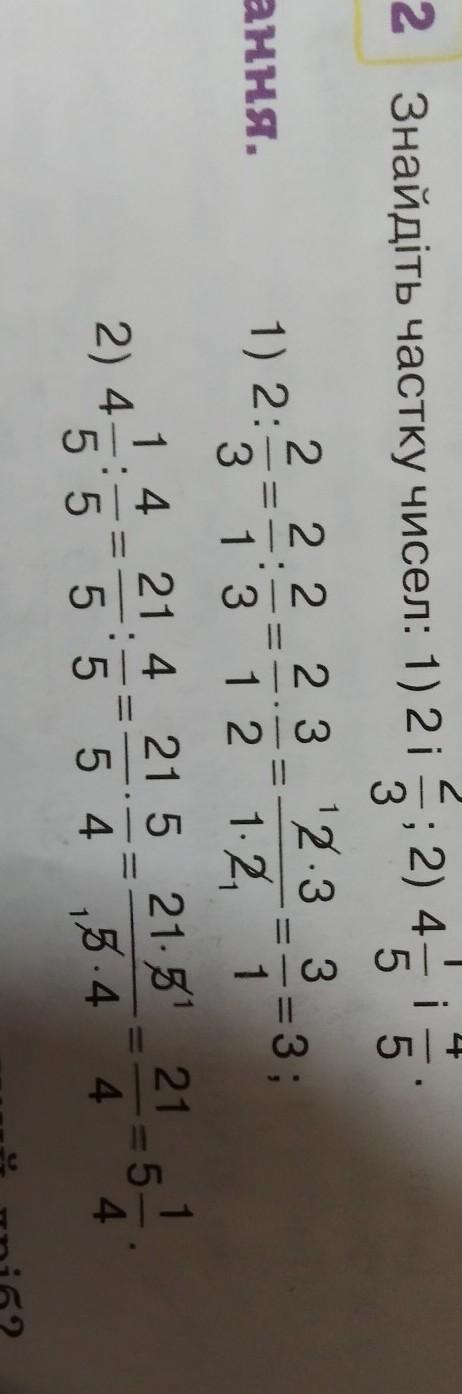 2 Знайдіть частку чисел: 1) 2 і 2/3; 2) 4 1/5 і 4/5.
ання.
1) 2 : 2/3 = 2/1 : 2/3 = 2/1 · 3/2 = ¹2·3/1·2₁ = 3/1 = 3;
2) 4 1/5 : 4/5 = 21/5 : 4/5 = 21/5 · 5/4 = 21·5¹/₁5·4 = 21/4 = 5 1/4.